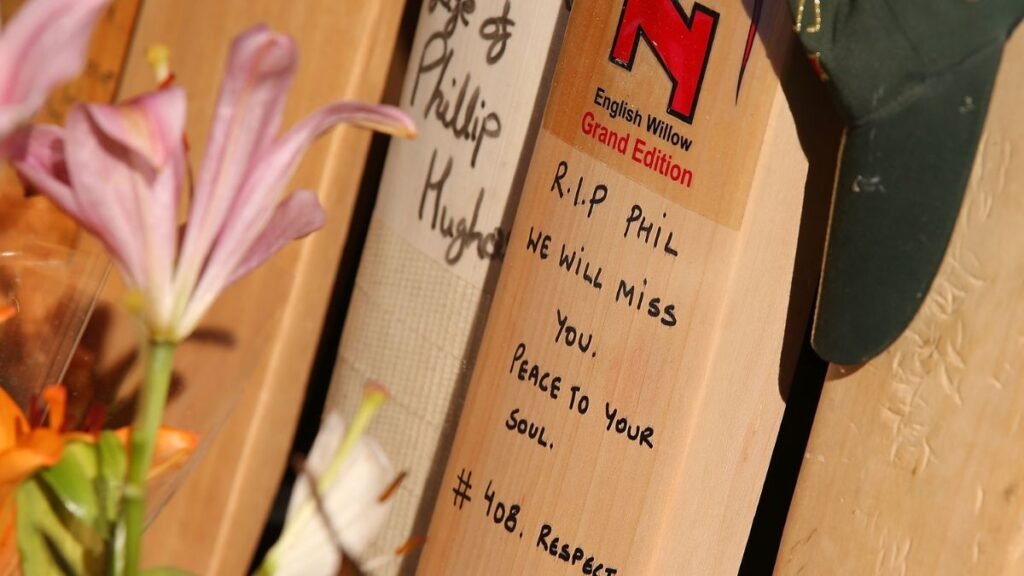 of
Phillip
Hughes
N
English Willow
Grand Edition
R.I.P PHIL
WE WILL MISS
YOU.
PEACE TO YOUR
SOUL.
# 408. RESPECT